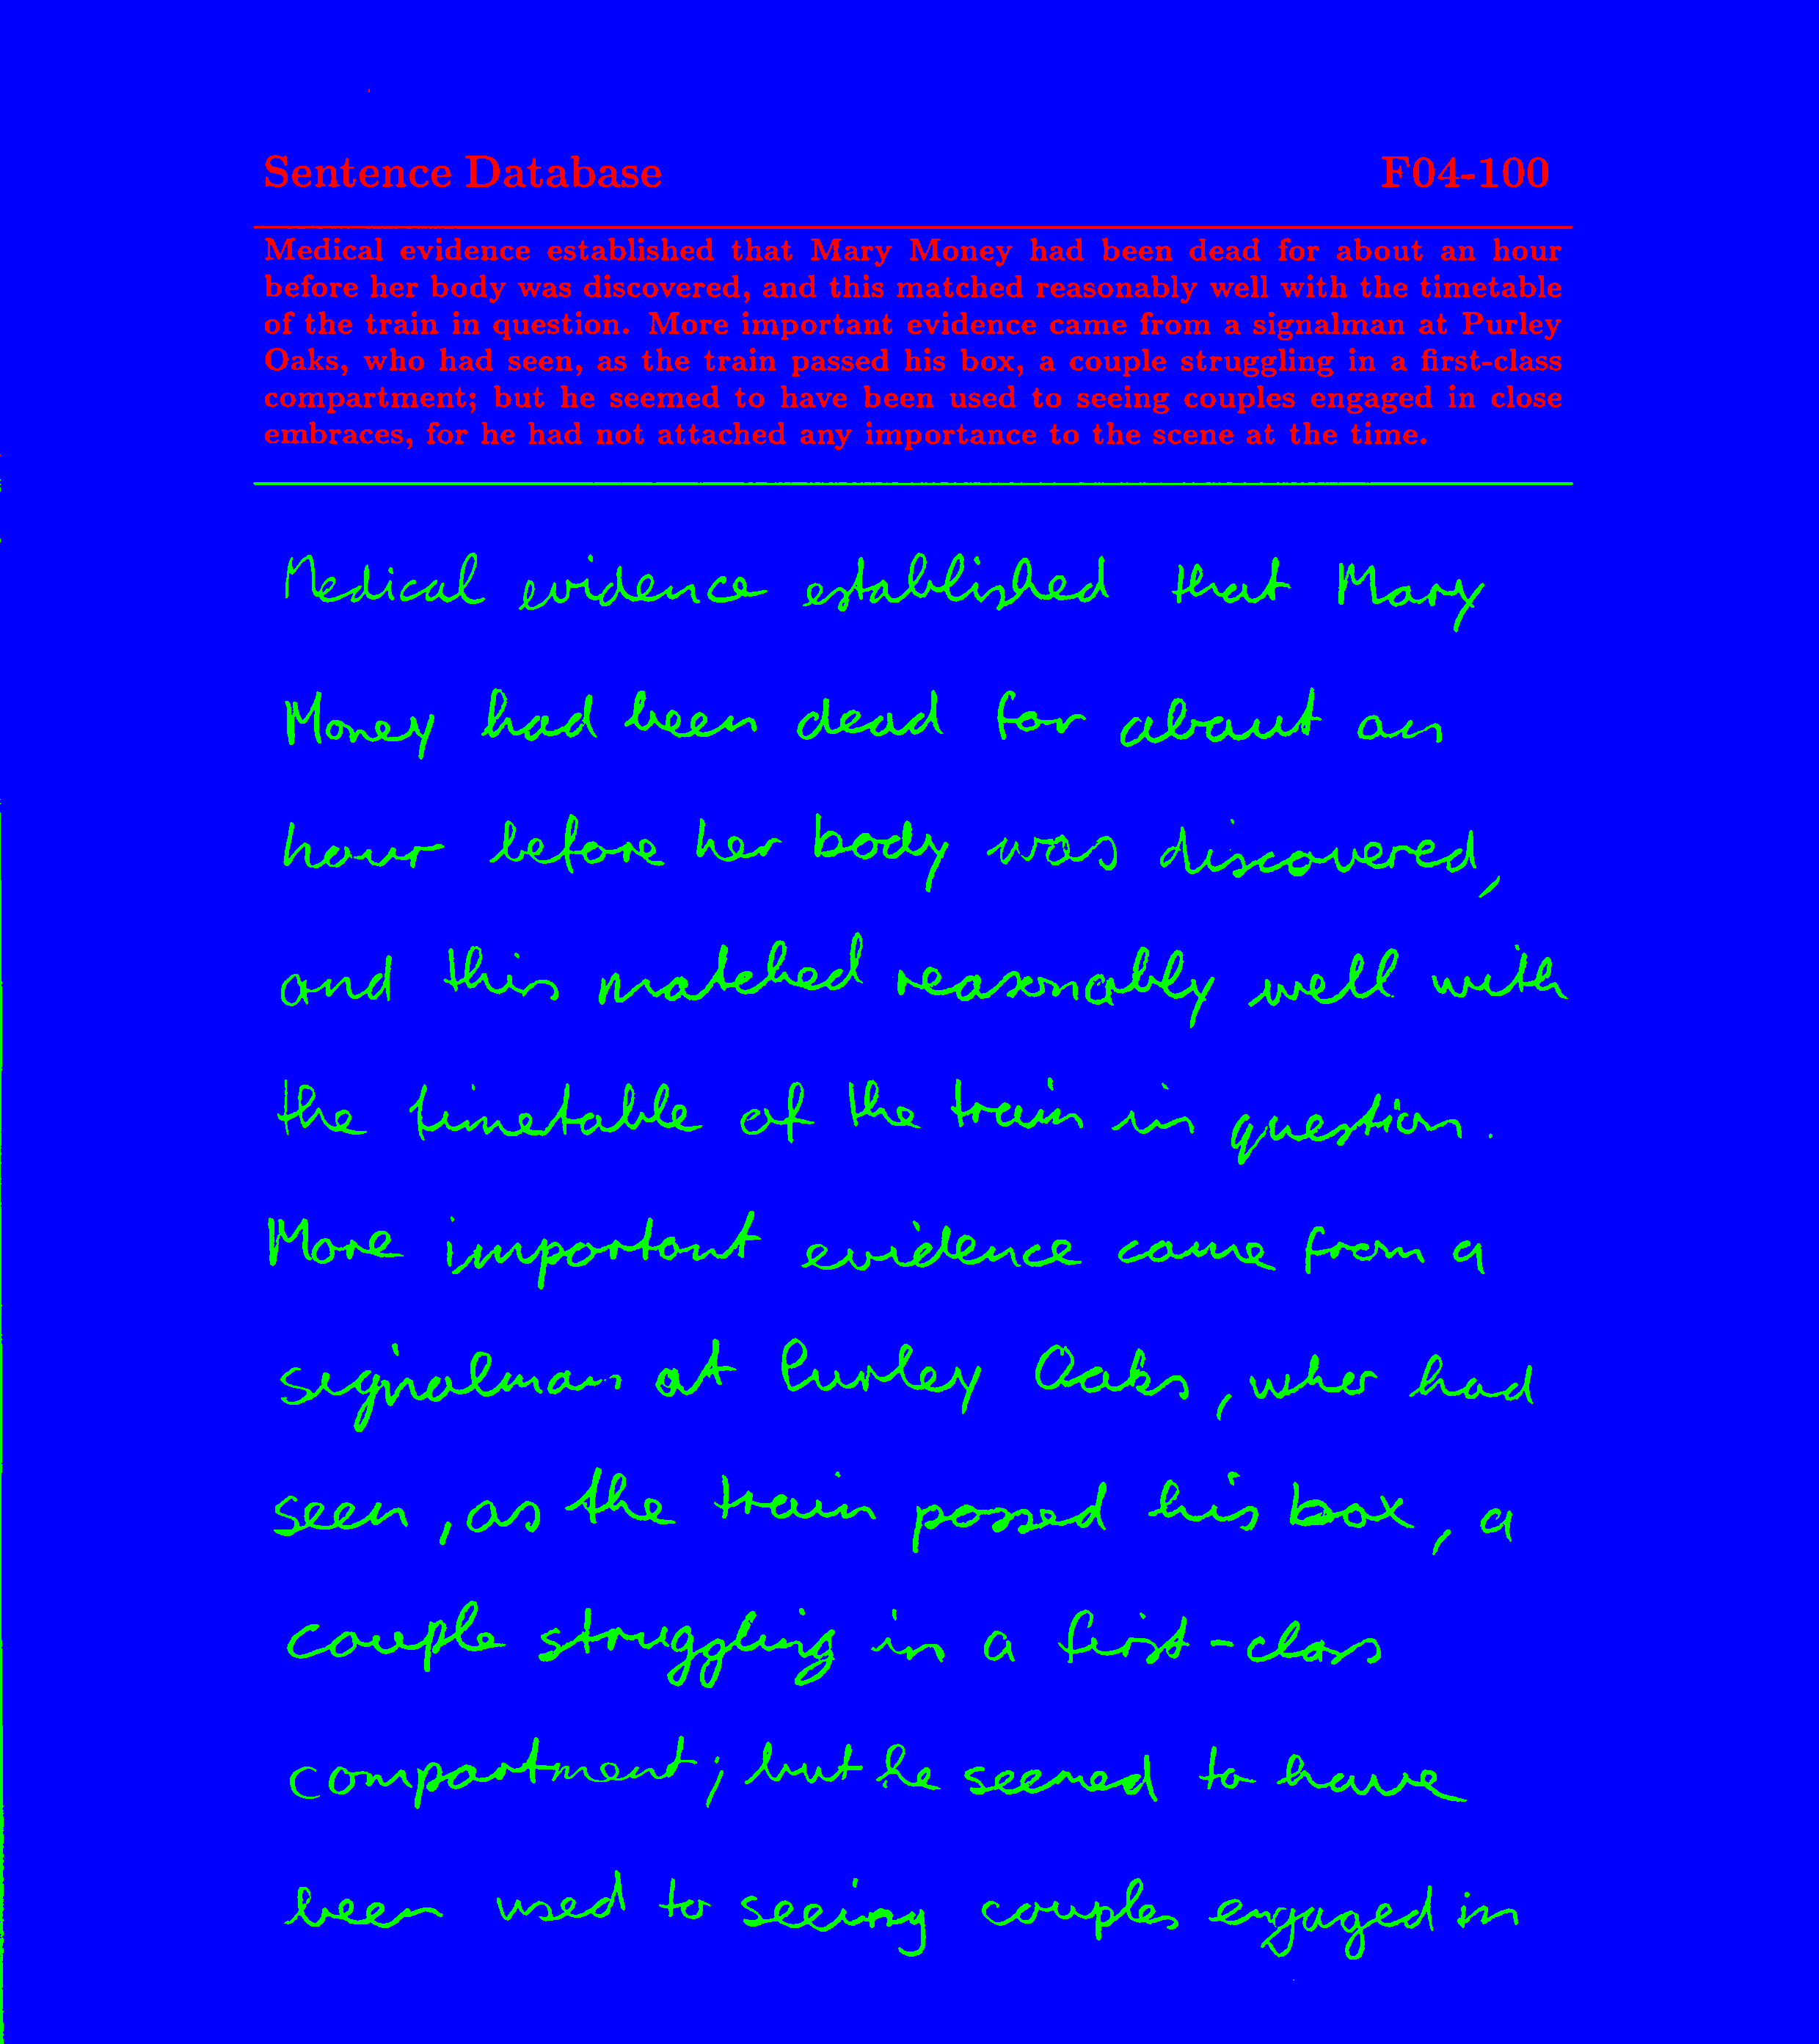 Sentence Database F04-100
Medical evidence established that Mary Money had been dead for about an hour
before her body was discovered, and this matched reasonably well with the timetable
of the train in question. More important evidence came from a signalman at Purley
Oaks, who had seen, as the train passed his box, a couple struggling in a first-class
compartment; but he seemed to have been used to seeing couples engaged in close
embraces, for he had not attached any importance to the scene at the time.
Medical evidence established that Mary
Money had been dead for about an
hour before her body was discovered,
and this matched reasonably well with
the timetable of the train in question.
More important evidence came from a
signalman at Purley Oaks, who had
seen, as the train passed his box, a
couple struggling in a first-class
compartment; but he seemed to have
been used to seeing couples engaged in